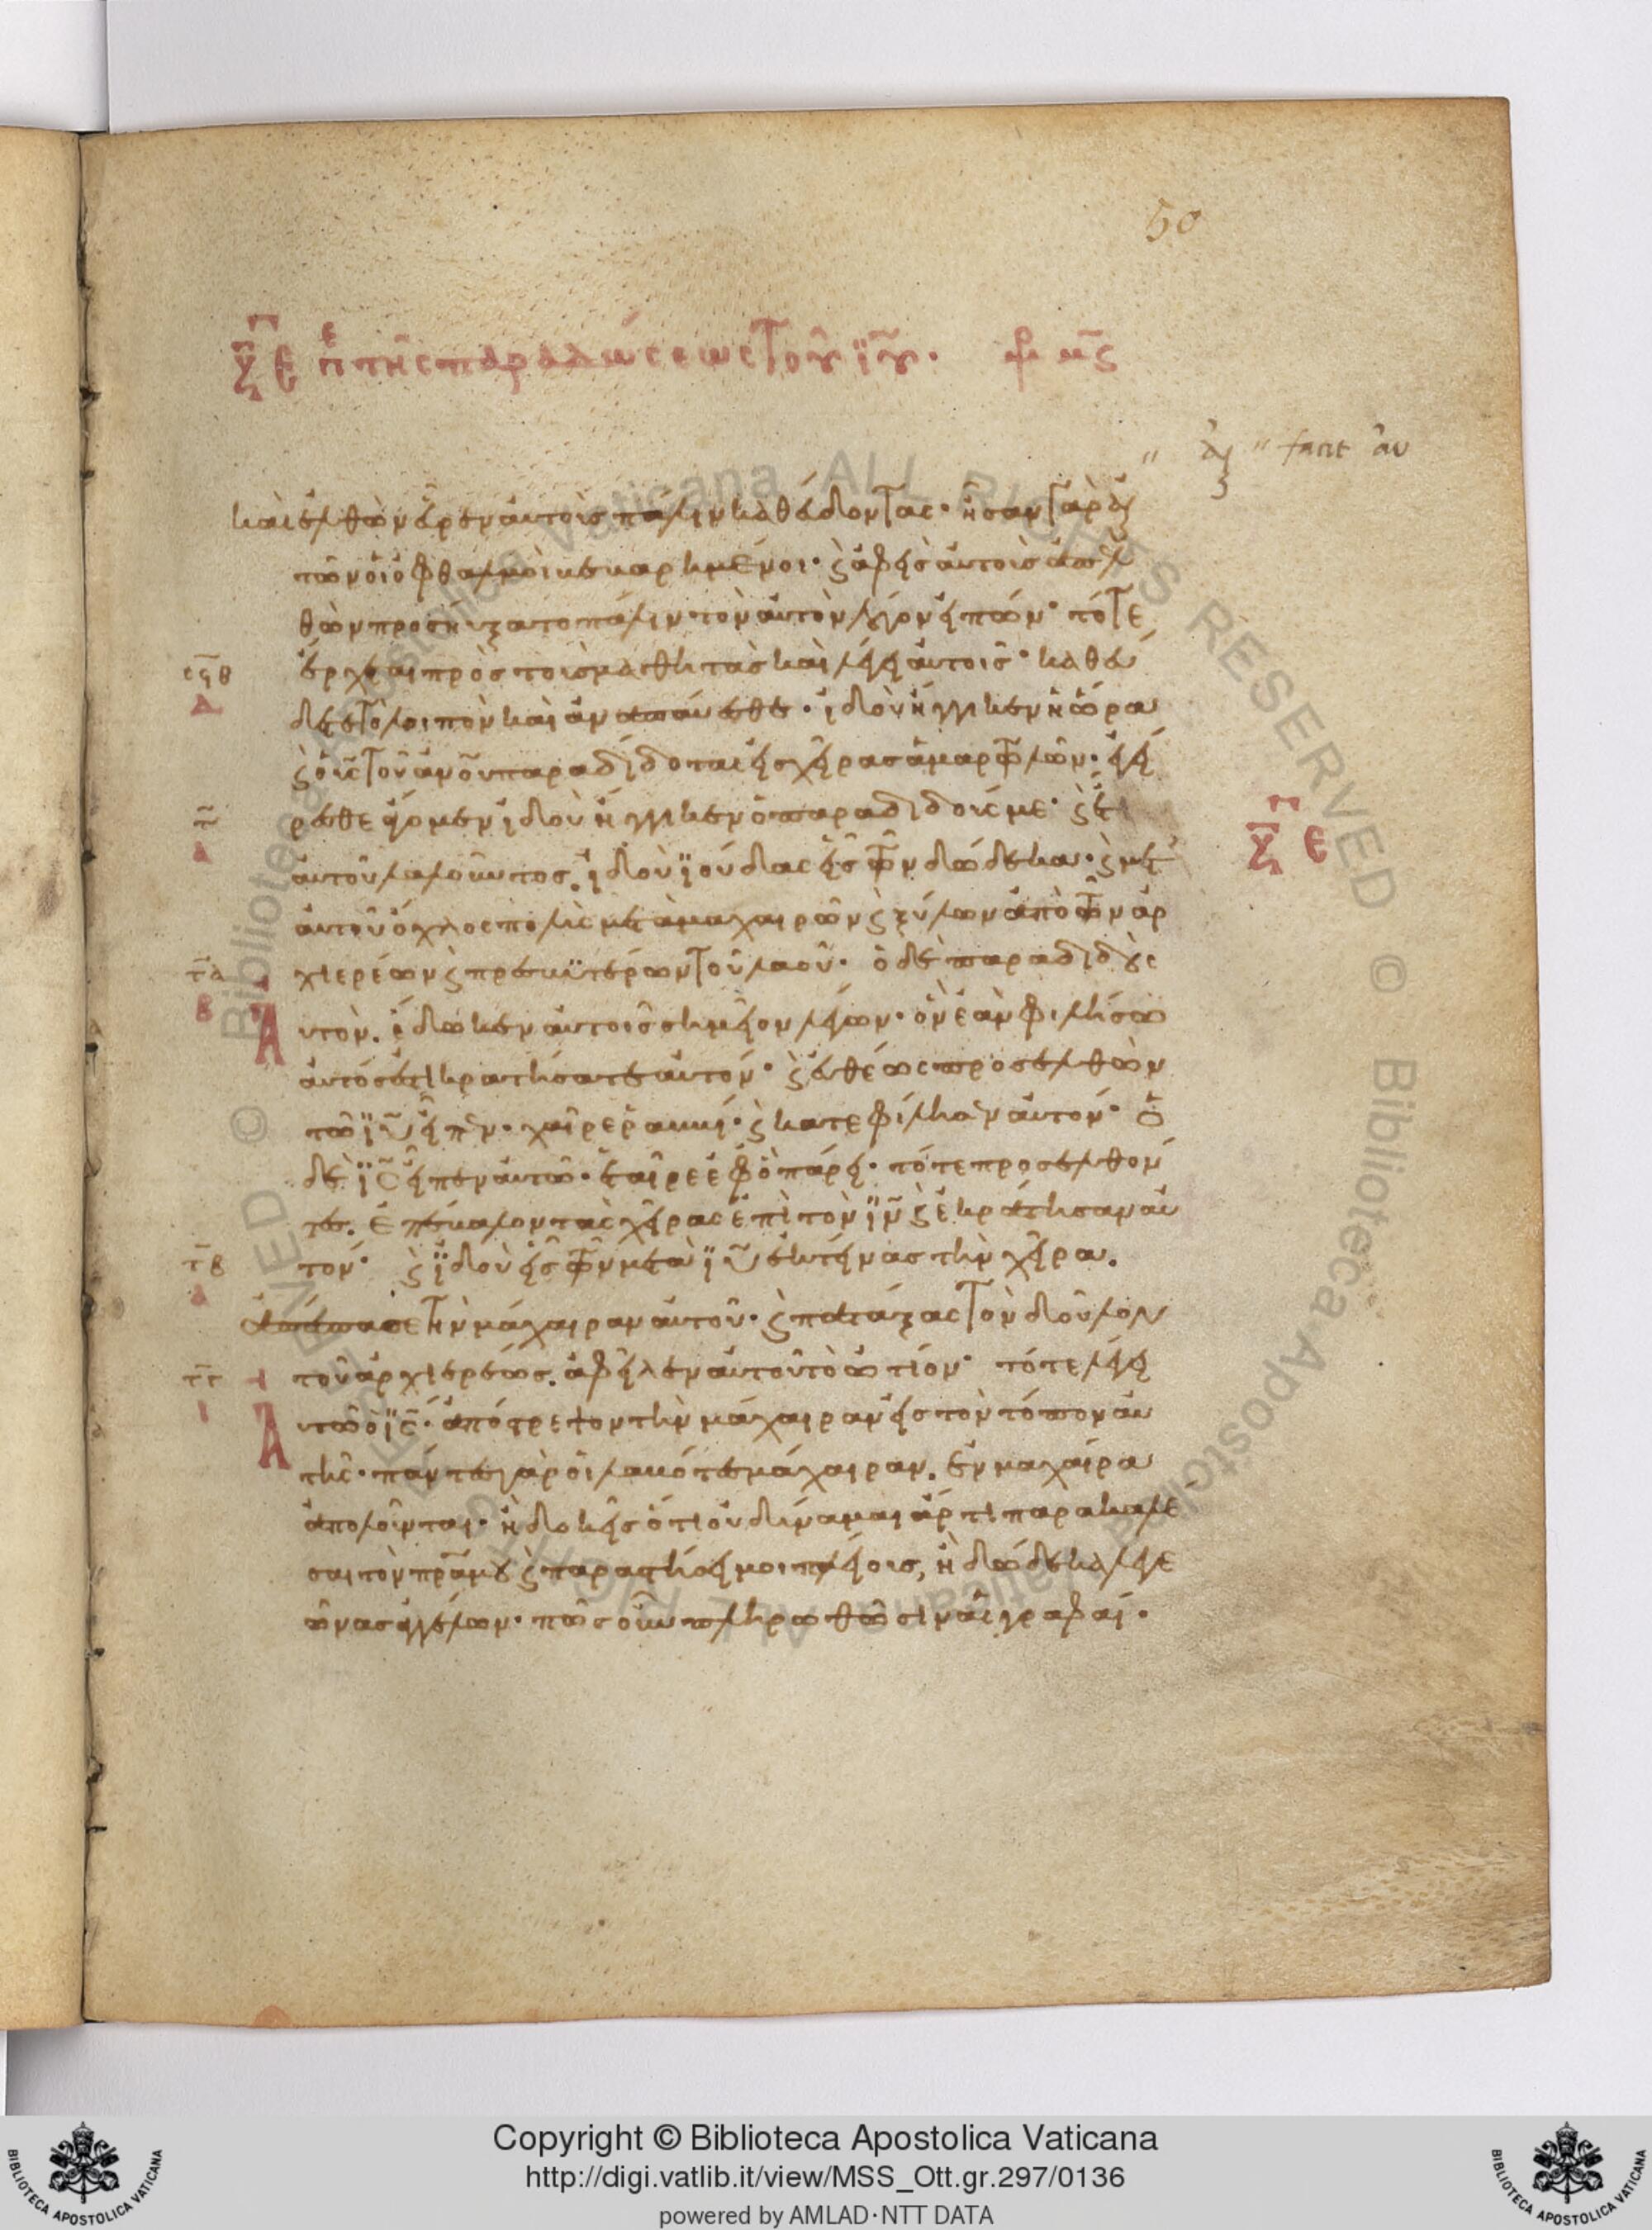 50
ξ̅ε̅ πε τῆς παραδώσεως τοῦ ἰ̅υ̅·
" " fact ἀυ
καὶ ἐλθὼν εὗρεν αὐτοὺς πάλιν καθεύδοντας· ἦσαν γὰρ αὐ
τῶν οἱ ὀφθαλμοὶ βεβαρημένοι· καὶ ἀφεὶς αὐτοὺς ἀπελ
θὼν προσηύξατο πάλιν τὸν αὐτὸν λόγον εἰπών· τότε
σ̅ϟ̅θ̅ ἔρχεται πρὸς τοὺς μαθητὰς καὶ λέγει αὐτοῖς· καθεύ
Δ δετε τὸ λοιπὸν καὶ ἀναπαύεσθε· ἰδοὺ ἤγγικεν ἡ ὥρα
καὶ ὁ υ̅ς̅ τοῦ ἀ̅ν̅ο̅υ̅ παραδίδοται εἰς χεῖρας ἁμαρτωλῶν· ἐγεί
τ̅ ρεσθε ἄγωμεν ἰδοὺ ἤγγικεν ὁ παραδιδούς με· καὶ ἔτι
αὐτοῦ λαλοῦντος, ἰδοὺ ἰούδας εἷς τῶν δώδεκα· καὶ μετ᾽
ξ̅ε̅
αὐτοῦ ὄχλος πολὺς μετὰ μαχαιρῶν καὶ ξύλων ἀπὸ τῶν ἀρ
τ̅α̅ χιερέων καὶ πρεσβυτέρων τοῦ λαοῦ· ὁ δὲ παραδιδοὺς
β Αὐτὸν, ἔδωκεν αὐτοῖς σημεῖον λέγων· ὃν ἐὰν φιλήσω
αὐτός ἐστι κρατήσατε αὐτόν· καὶ εὐθέως προσελθὼν
τῶ ἰ̅υ̅ εἶπεν· χαῖρε ῥαββί· καὶ κατεφίλησεν αὐτόν· ὁ
δὲ ἰ̅ς̅ εἶπεν αὐτῶ· ἑταῖρε ἐφ᾽ ὃ πάρει· τότε προσελθόν
τες, ἐπέβαλον τὰς χεῖρας ἐπὶ τὸν ἰ̅ν̅ καὶ ἐκράτησαν αὐ
τ̅β̅ τόν· καὶ ἰδοὺ εἷς τῶν μετὰ ἰ̅υ̅ ἐκτείνας τὴν χεῖρα,
ἀπέσπασε τὴν μάχαιραν αὐτοῦ· καὶ πατάξας τὸν δοῦλον
τ̅γ̅ τοῦ ἀρχιερέως, ἀφεῖλεν αὐτοῦ τὸ ὠτίον· τότε λέγει
Αὐτῶ ὁ ἰ̅ς̅· ἀπόστρεψον τὴν μάχαιραν εἰς τὸν τόπον αὐ
τῆς· πάντες γὰρ οἱ λαβόντες μάχαιραν, ἐν μαχαίρα
ἀπολοῦνται· ἢ δοκεῖς ὅτι οὐ δύναμαι ἄρτι παρακαλέ
σαι τὸν π̅ρ̅α̅ μου καὶ παραστήσει μοι πλείους, ἢ δώδεκα λεγε
ῶνας ἀγγέλων· πῶς οὖν πληρωθῶσιν αἱ γραφαί·
Copyright © Biblioteca Apostolica Vaticana
http://digi.vatlib.it/view/MSS_Ott.gr.297/0136
powered by AMLAD·NTT DATA